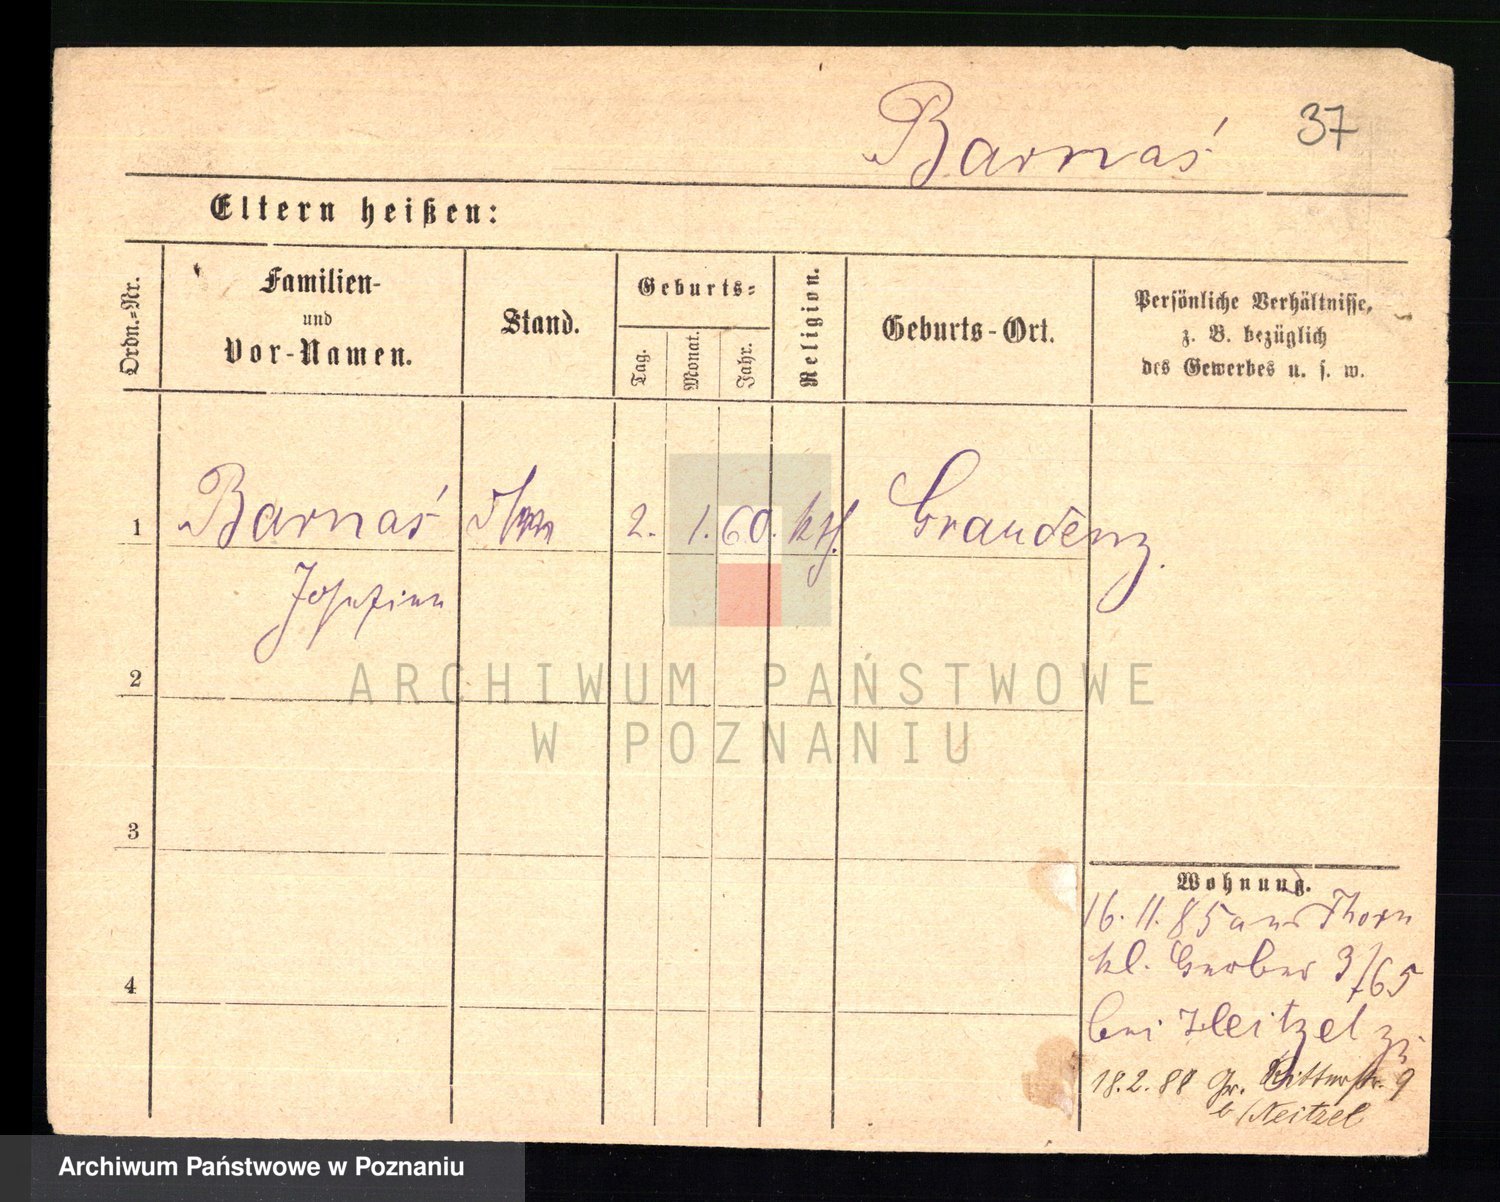 Barnaś 37
Eltern heißen:
Ordn.-Nr.
Familien-
und
Vor-Namen.
Stand.
Geburts-
Tag.
Monat.
Jahr.
Religion.
Geburts-Ort.
Persönliche Verhältnisse,
z. B. bezüglich
des Gewerbes u. s. w.
1 Barnaś 2. 1. 60. kth. Graudenz.
Josefine
2
3
4
Wohnung.
16. 11. 85 aus Thorn
kl. Gerber 3/65
bei Neitzel
18. 2. 88 Gr. Ritterstr. 9
b/Neitzel
ARCHIWUM PAŃSTWOWE
W POZNANIU
Archiwum Państwowe w Poznaniu